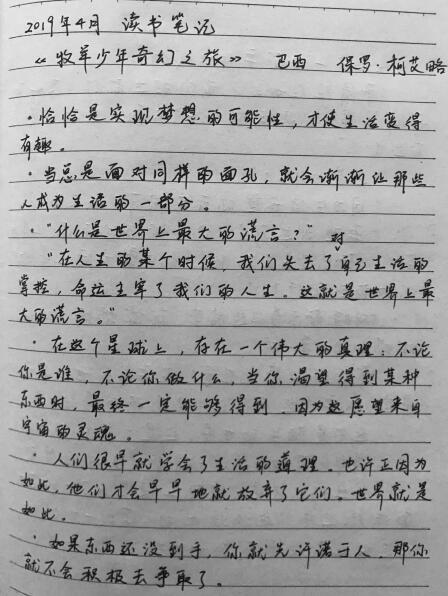 2019年4月 读书笔记
《牧羊少年奇幻之旅》 巴西 保罗·柯艾略
·恰恰是实现梦想的可能性，才使生活变得
有趣。
·当总是面对同样的面孔，就会渐渐让那些
人成为生活的一部分。
·"什么是世界上最大的谎言？"
"在人生的某个时候，我们失去了对自己生活的
掌控，命运主宰了我们的人生。这就是世界上最
大的谎言。"
·在这个星球上，存在一个伟大的真理：不论
你是谁，不论你做什么，当你渴望得到某种
东西时，最终一定能够得到，因为这愿望来自
宇宙的灵魂。
·人们很早就学会了生活的道理。也许正因为
如此，他们才会早早地就放弃了它们。世界就是
如此。
·如果东西还没到手，你就先许诺于人，那你
就不会积极去争取了。